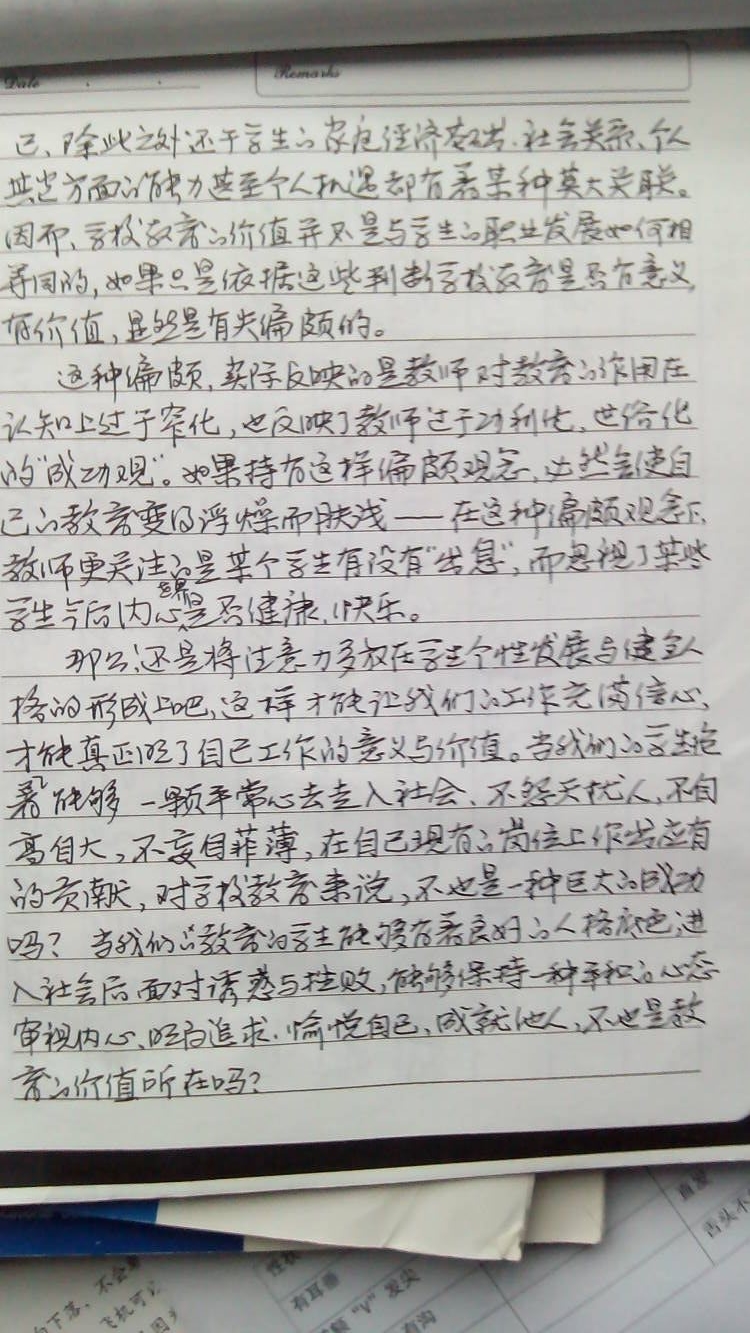 Date
Remarks
已、除此之外还于学生的家庭经济基础、社会关系、个人
其它方面的能力甚至个人机遇都有着某种莫大关联。
因而、学校教育的价值并不是与学生的职业发展如何相
等同的,如果只是依据这些判断学校教育是否有意义,
有价值,显然是有失偏颇的。
这种偏颇,实际反映的是教师对教育的作用在
认知上过于窄化,也反映了教师过于功利化、世俗化
的“成功观”。如果持有这样偏颇观念,必然会使自
己的教育变得浮燥而肤浅——在这种偏颇观念下,
教师更关注的是某个学生有没有“出息”,而忽视了某些
学生今后内心世界是否健康、快乐。
那么,还是将注意力多放在学生个性发展与健全人
格的形成上吧,这样才能让我们的工作充满信心,
才能真正明了自己工作的意义与价值。当我们的学生抱
着能够一颗平常心去走入社会、不怨天扰人,不自
高自大,不妄自菲薄,在自己现有的岗位上作出应有
的贡献,对学校教育来说,不也是一种巨大的成功
吗?当我们的教育的学生能够有着良好的人格底色,进
入社会后面对诱惑与挫败,能够保持一种平和的心态
审视内心、明白追求、愉悦自己,成就他人,不也是教
育的价值所在吗?
性状
有耳垂
"V"发尖
有沟
直发
舌头不
下落,不会
飞机可
因